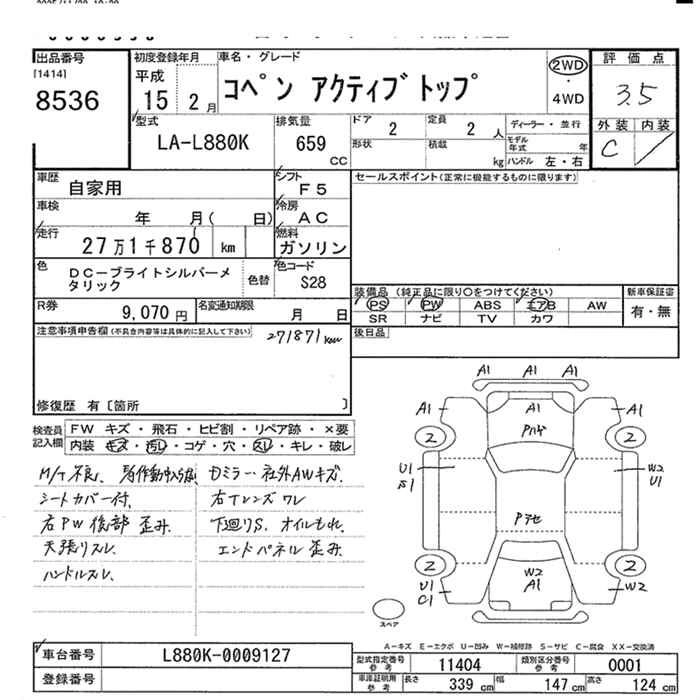 出品番号
[1414]
8536
初度登録年月
平成
15 2月
車名・グレード
コペン アクティブ トップ
2WD
・
4WD
評価点
3.5
外装 内装
C
型式
LA-L880K
排気量
659
CC
ドア 2
定員 2 人
形状
積載 kg
ディーラー・並行
モデル年式 年
ハンドル 左・右
車歴
自家用
シフト
F5
セールスポイント(正常に機能するものに限ります)
車検
年 月( 日)
冷房
AC
走行
27万1千870 km
燃料
ガソリン
色
DC-ブライトシルバーメ
タリック
色替
色コード
S28
装備品 (純正品に限り○をつけてください)
PS PW ABS エアB AW
SR ナビ TV カワ
新車保証書
有・無
R券
9,070 円
名変通知期限
月 日
後日品
注意事項申告欄(不具合内容等は具体的に記入して下さい)
271871km
修復歴 有〔箇所 〕
検査員
記入欄
FW キズ・飛石・ヒビ割・リペア跡・×要
内装 キズ・汚レ・コゲ・穴・スレ・キレ・破レ
M/T不良、
シートカバー付、
右PW後部 歪み、
天張りスレ、
ハンドルスレ、
Dミラー・社外AWキズ、
右Tレンズ ワレ
下廻りS、オイルもれ、
エンドパネル 歪み、
A1 A1 A1
A1 A1 A1
2 2
Pハゲ
U1
S1
W2
U1
Pアセ
2 2
W2
A1
U1
C1
W2
スペア
A-キズ E-エクボ U-凹み W-補修跡 S-サビ C-腐食 XX-交換済
車台番号
L880K-0009127
登録番号
型式指定番号
参考
11404
類別区分番号
参考
0001
車庫証明用
参考
長さ 339 cm
幅 147 cm
高さ 124 cm